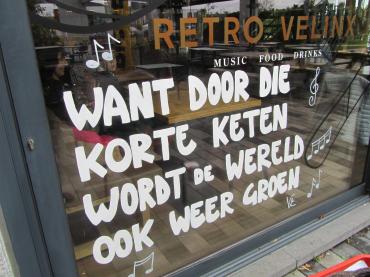 RETRO VELINX
MUSIC FOOD DRINKS
WANT DOOR DIE
KORTE KETEN
WORDT DE WERELD
OOK WEER GROEN